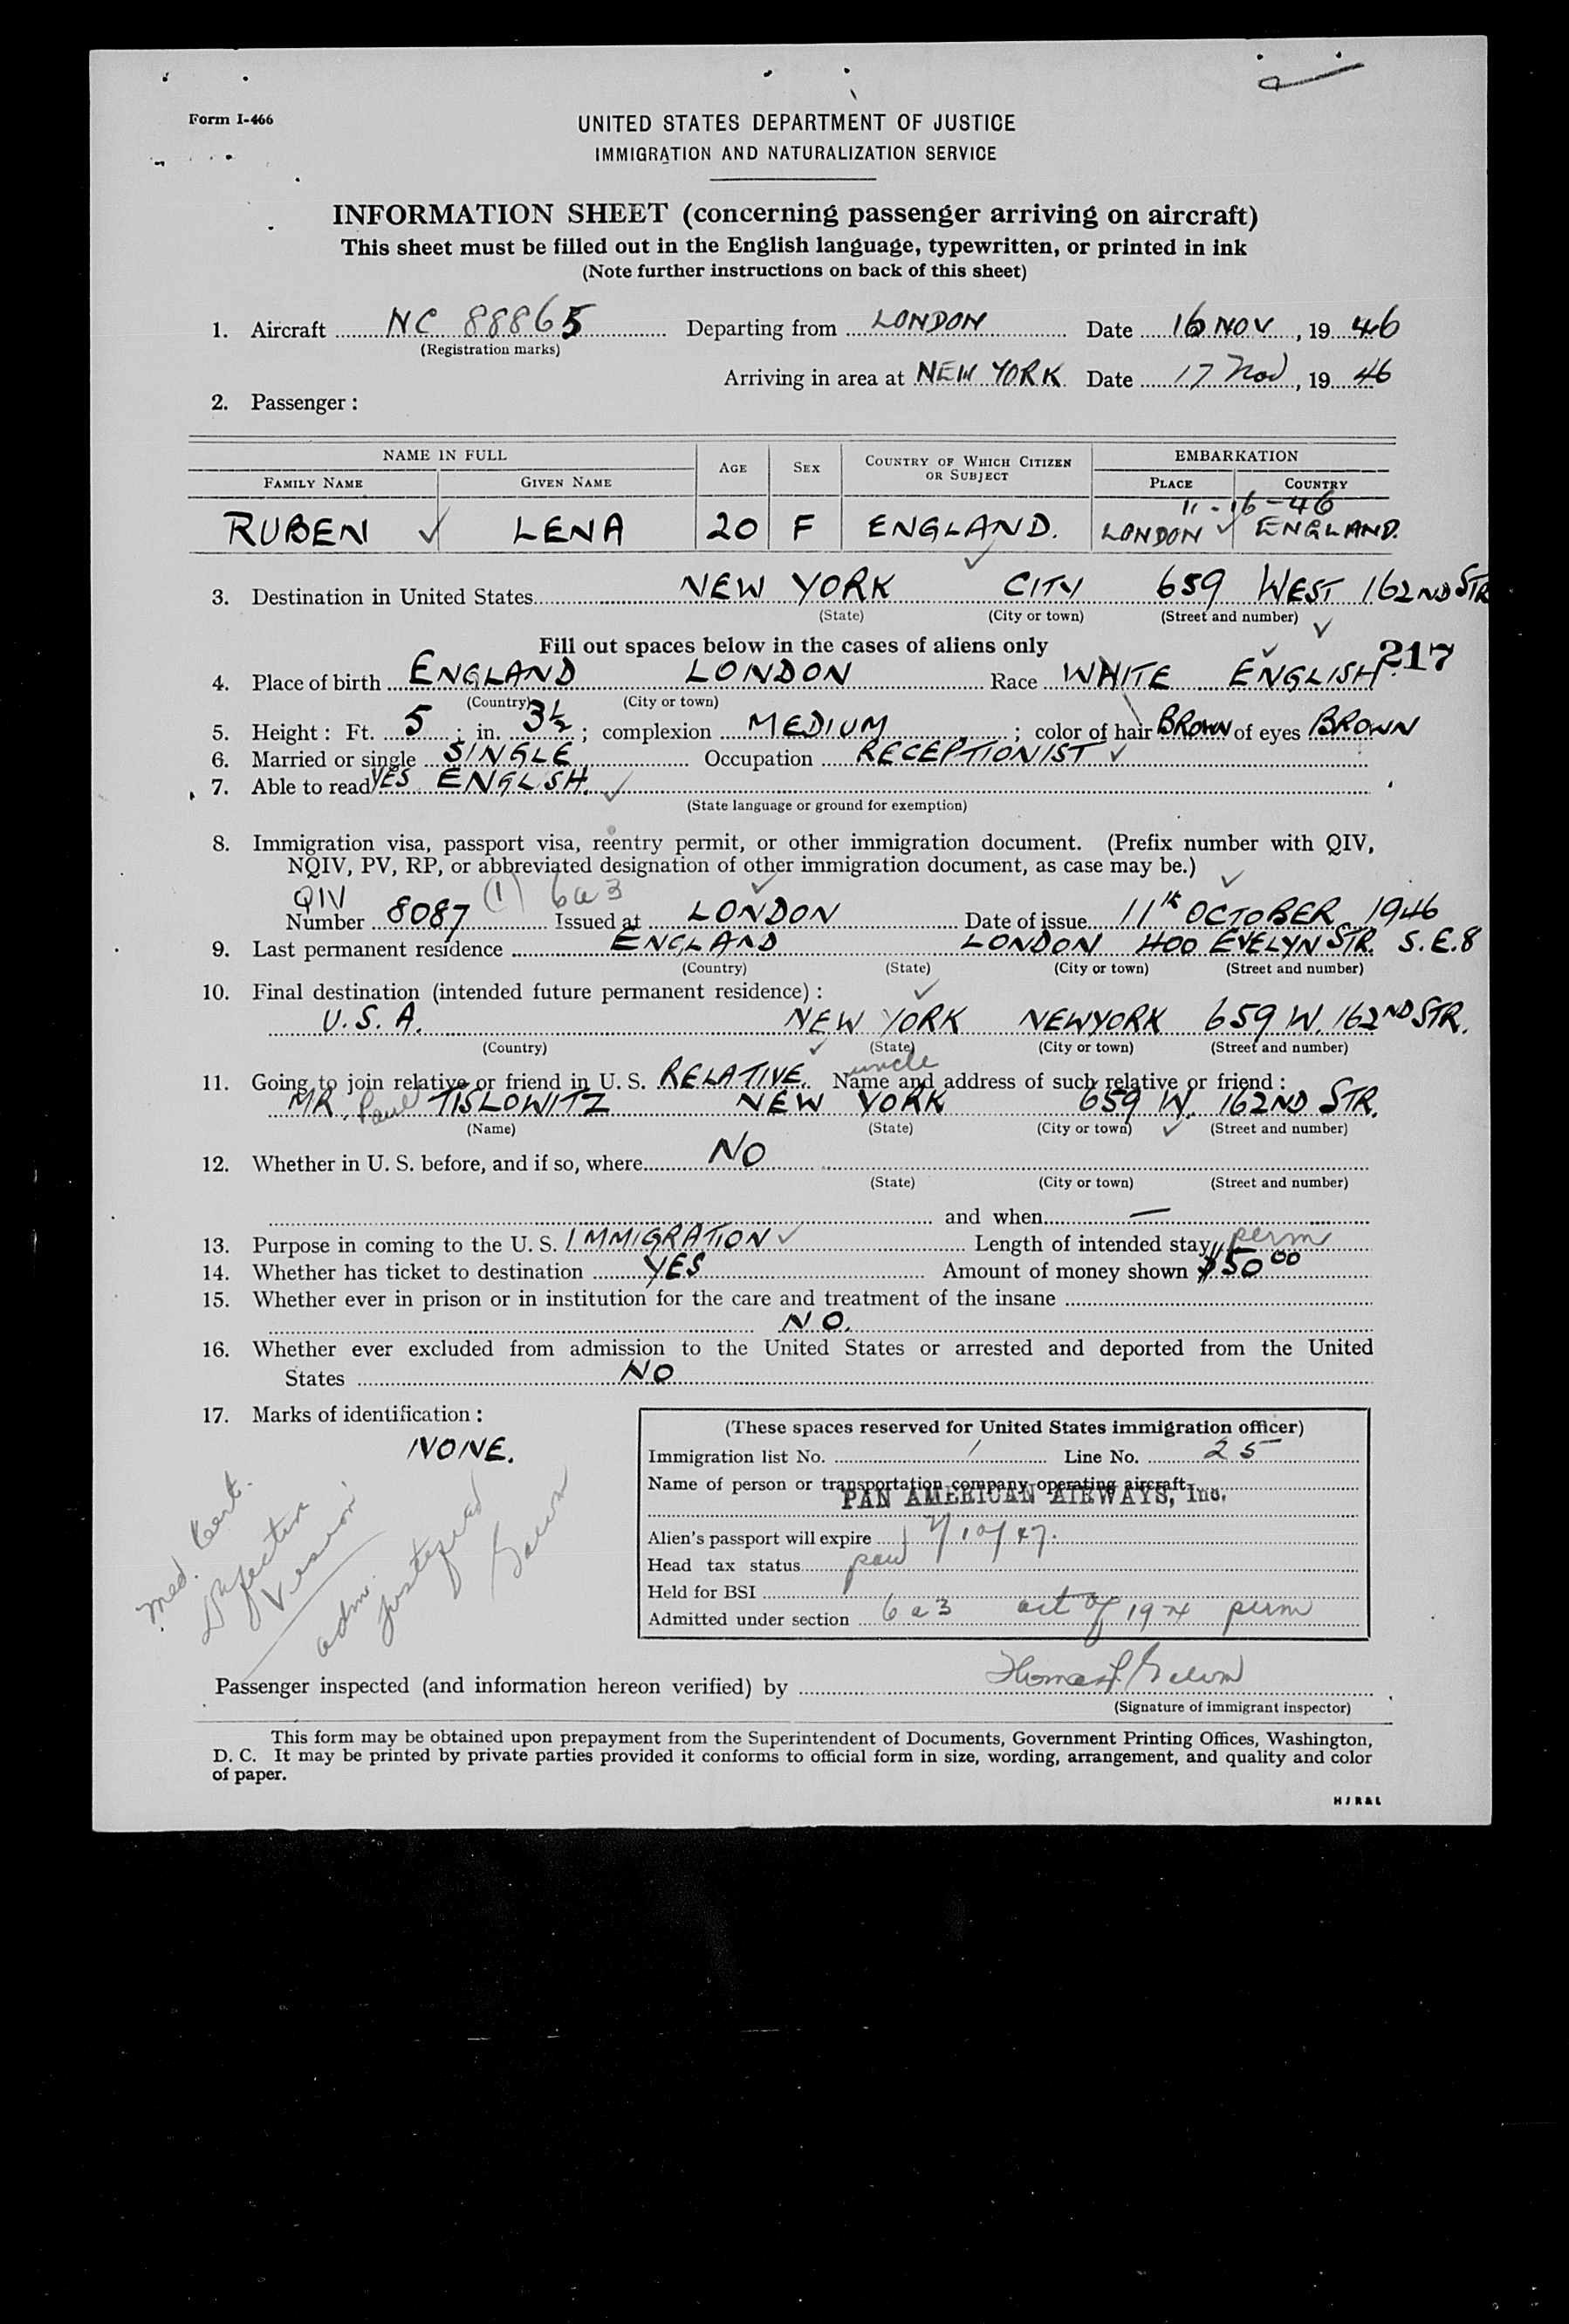 Form I-466
UNITED STATES DEPARTMENT OF JUSTICE
IMMIGRATION AND NATURALIZATION SERVICE
INFORMATION SHEET (concerning passenger arriving on aircraft)
This sheet must be filled out in the English language, typewritten, or printed in ink
(Note further instructions on back of this sheet)
1. Aircraft NC 88865 Departing from LONDON Date 16 NOV, 1946
(Registration marks)
Arriving in area at NEW YORK Date 17 Nov, 1946
2. Passenger:
NAME IN FULL AGE SEX COUNTRY OF WHICH CITIZEN OR SUBJECT EMBARKATION
FAMILY NAME GIVEN NAME PLACE COUNTRY
11-16-46
RUBEN LENA 20 F ENGLAND. LONDON ENGLAND.
3. Destination in United States NEW YORK CITY 659 WEST 162ND STR
(State) (City or town) (Street and number)
Fill out spaces below in the cases of aliens only
217
4. Place of birth ENGLAND LONDON Race WHITE ENGLISH.
(Country) (City or town)
5. Height: Ft. 5; in. 3½; complexion MEDIUM; color of hair BROWN of eyes BROWN
6. Married or single SINGLE Occupation RECEPTIONIST
7. Able to read YES ENGLSH.
(State language or ground for exemption)
8. Immigration visa, passport visa, reentry permit, or other immigration document. (Prefix number with QIV,
NQIV, PV, RP, or abbreviated designation of other immigration document, as case may be.)
QIV (1) 6a3
Number 8087 Issued at LONDON Date of issue 11th OCTOBER 1946
9. Last permanent residence ENGLAND LONDON 400 EVELYN STR. S.E.8
(Country) (State) (City or town) (Street and number)
10. Final destination (intended future permanent residence):
U.S.A. NEW YORK NEWYORK 659 W. 162ND STR.
(Country) (State) (City or town) (Street and number)
uncle
11. Going to join relative or friend in U. S. RELATIVE. Name and address of such relative or friend:
MR. Paul TISLOWITZ NEW YORK 659 W. 162ND STR.
(Name) (State) (City or town) (Street and number)
12. Whether in U. S. before, and if so, where NO
(State) (City or town) (Street and number)
and when —
13. Purpose in coming to the U. S. IMMIGRATION Length of intended stay perm
14. Whether has ticket to destination YES Amount of money shown $50 00
15. Whether ever in prison or in institution for the care and treatment of the insane
NO.
16. Whether ever excluded from admission to the United States or arrested and deported from the United
States NO
17. Marks of identification:
NONE.
(These spaces reserved for United States immigration officer)
Immigration list No. 1 Line No. 25
Name of person or transportation company operating aircraft
PAN AMERICAN AIRWAYS, Inc.
Alien's passport will expire 7/10/47.
Head tax status paid
Held for BSI
Admitted under section 6a3 act of 1924 perm
med. Cert.
Defective
Vision
adm.
Passenger inspected (and information hereon verified) by
(Signature of immigrant inspector)
This form may be obtained upon prepayment from the Superintendent of Documents, Government Printing Offices, Washington,
D. C. It may be printed by private parties provided it conforms to official form in size, wording, arrangement, and quality and color
of paper.
HJR&L